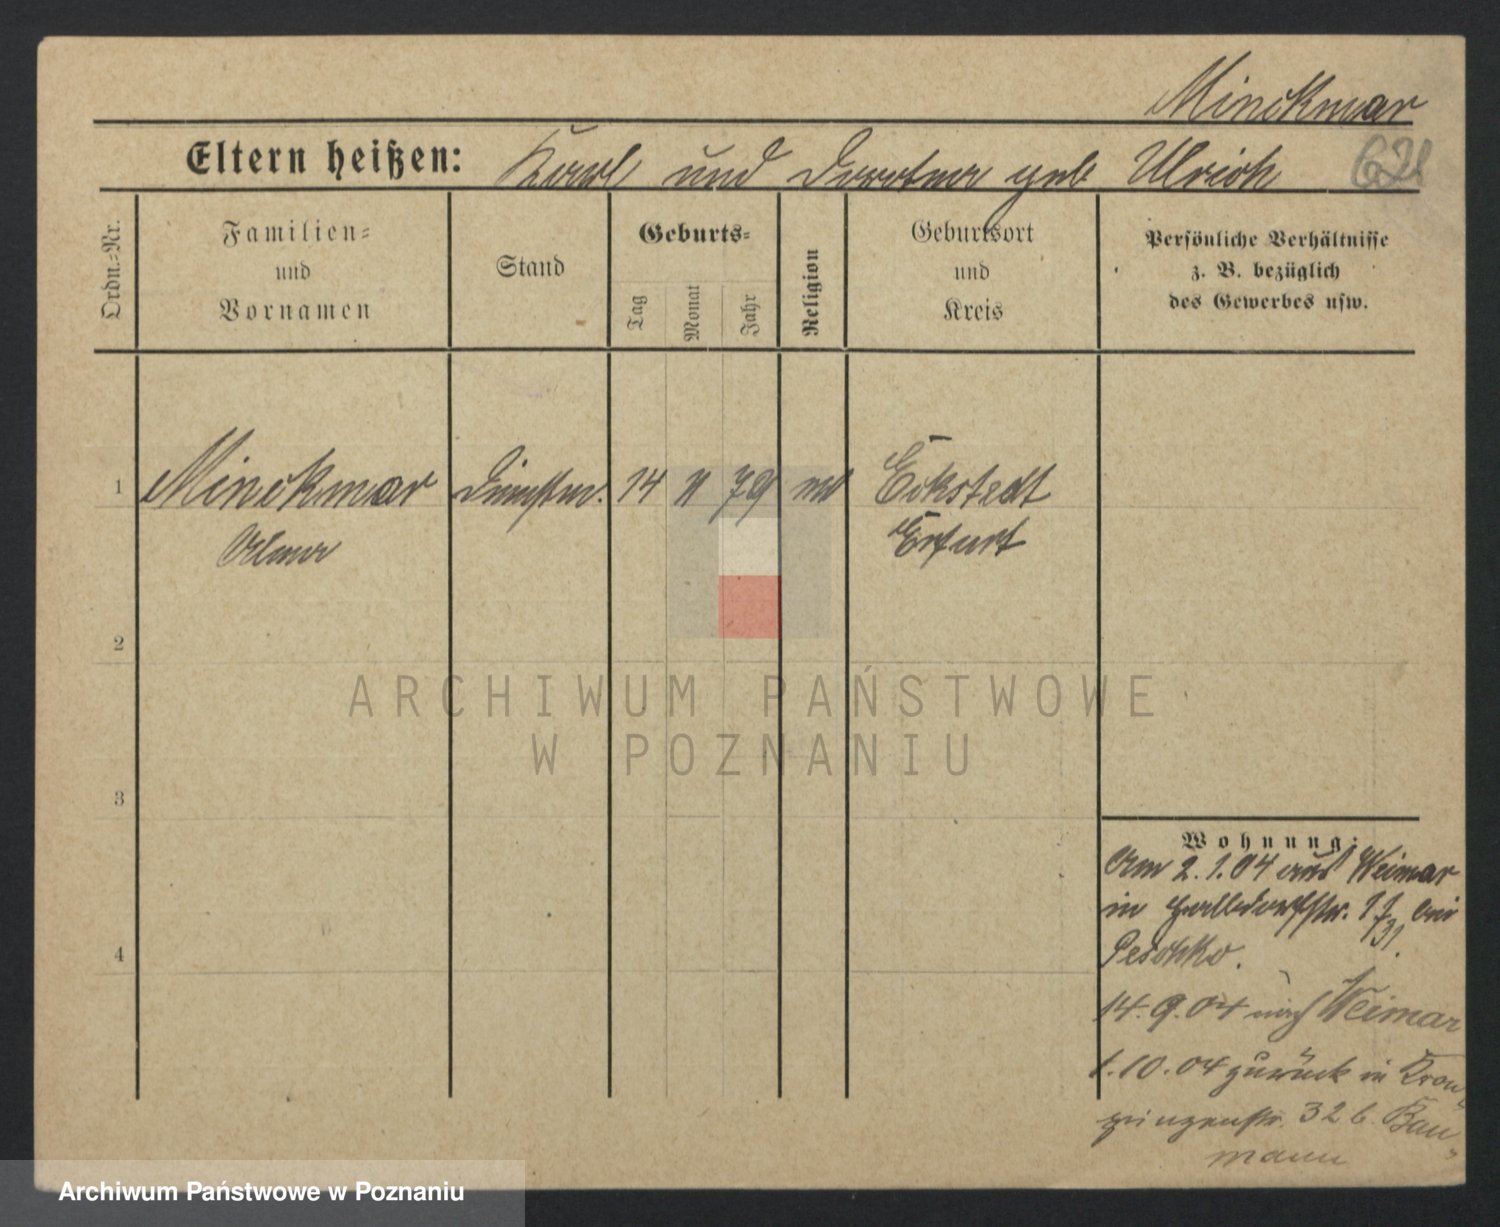 Minckmar
Eltern heißen: Karl und Dorothea geb Ulrich
621
Ordn.-Nr.
Familien-
und
Vornamen
Stand
Geburts-
Tag
Monat
Jahr
Religion
Geburtsort
und
Kreis
Persönliche Verhältnisse
z. B. bezüglich
des Gewerbes usw.
1 Minckmar 14 79 Eckstedt
Erfurt
2
3
4
ARCHIWUM PAŃSTWOWE
W POZNANIU
Wohnung:
Am 2.1.04 aus Weimar
in bei
14.9.04 nach Weimar
1.10.04 zurück in Kron-
prinzenstr. 32 b. Bau-
mann
Archiwum Państwowe w Poznaniu